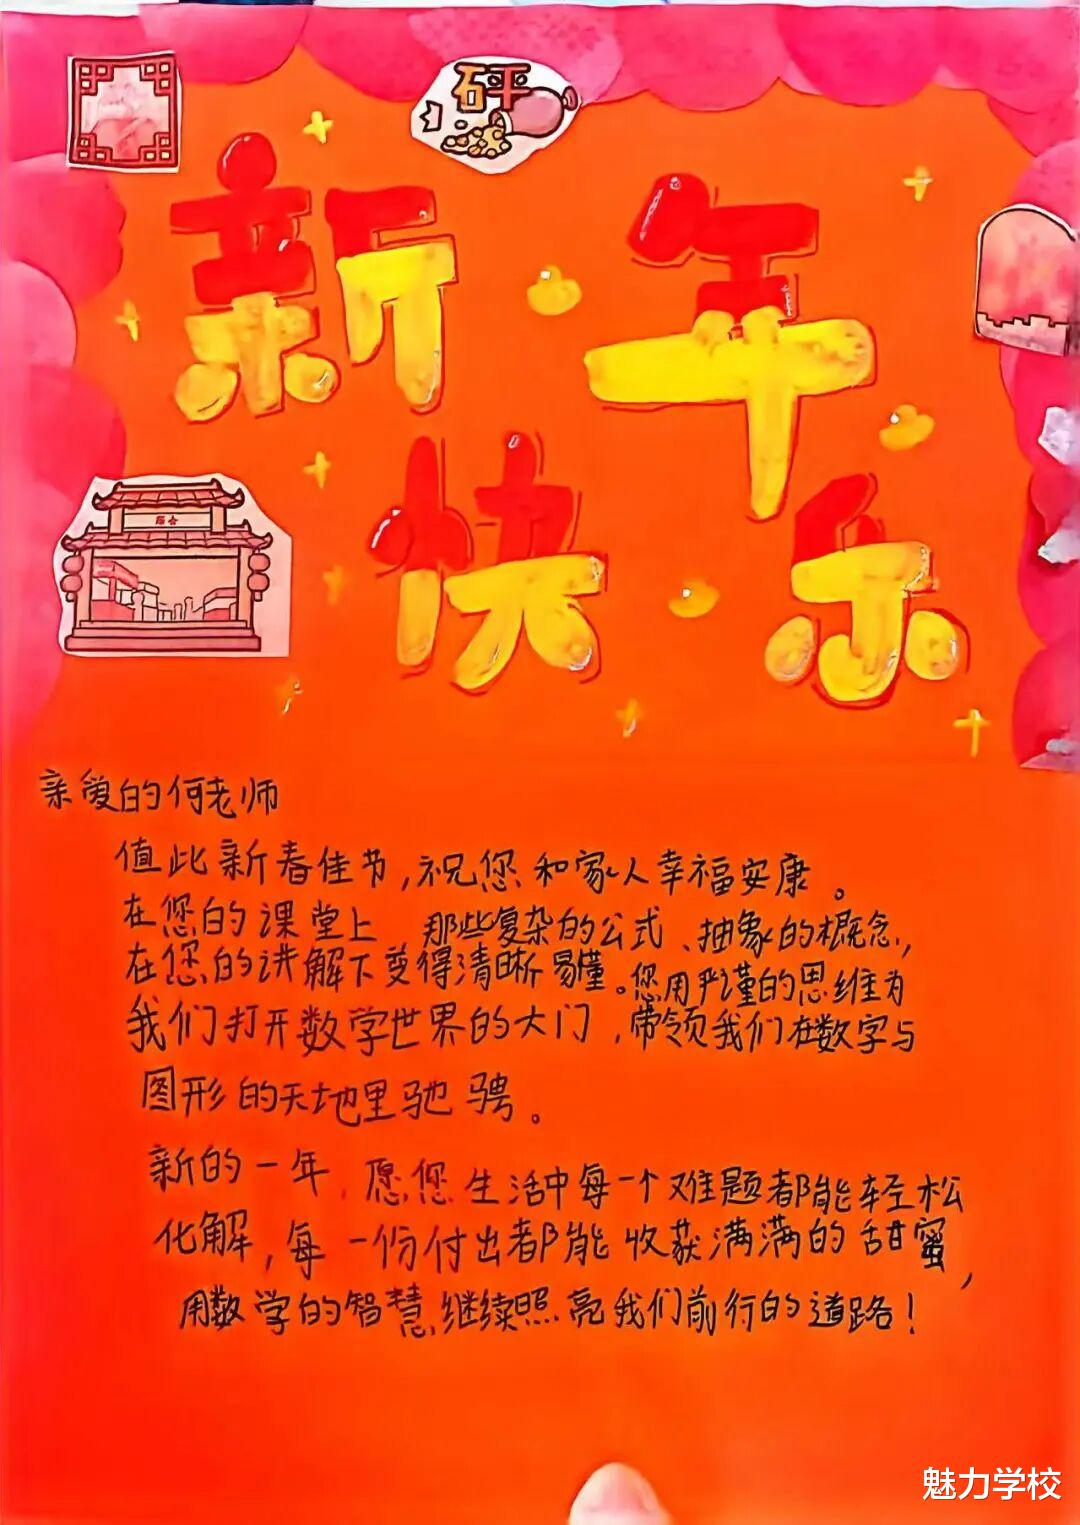 砰
新年
快乐
亲爱的何老师
值此新春佳节,祝您和家人幸福安康。
在您的课堂上 那些复杂的公式、抽象的概念,
在您的讲解下变得清晰易懂。您用严谨的思维为
我们打开数学世界的大门,带领我们在数字与
图形的天地里驰骋。
新的一年,愿您生活中每一个难题都能轻松
化解,每一份付出都能收获满满的甜蜜,
用数学的智慧继续照亮我们前行的道路!
魅力学校